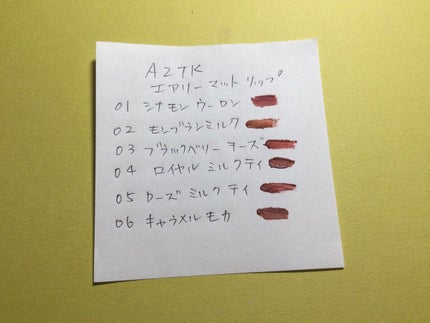 A27K
エアリーマットリップ
01 シナモンウーロン
02 モンブランミルク
03 ブラックベリーチーズ
04 ロイヤルミルクティ
05 ローズミルクティ
06 キャラメルモカ